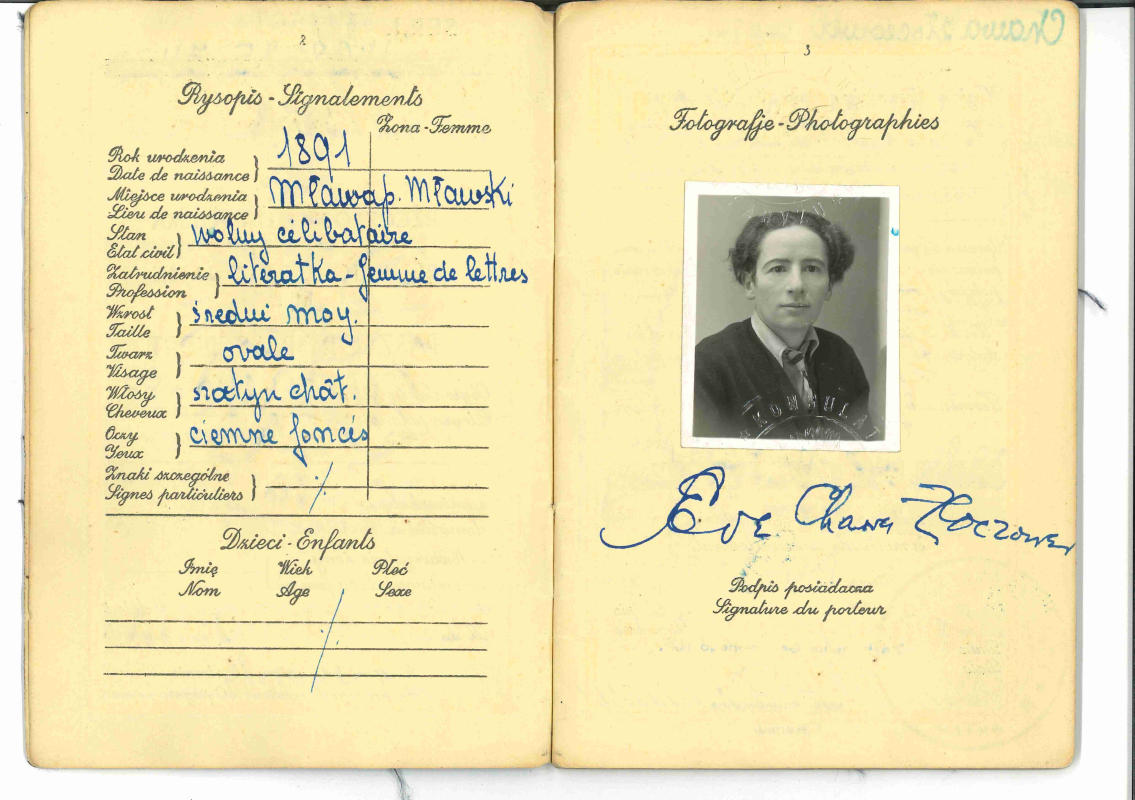 2
Rysopis - Signalements
Żona-Femme
Rok urodzenia
Date de naissance
1891
Miejsce urodzenia
Lieu de naissance
Mława p. Mławski
Stan
Etat civil
wolny célibataire
Zatrudnienie
Profession
literatka - femme de lettres
Wzrost
Taille
średni moy.
Twarz
Visage
ovale
Włosy
Cheveux
szatyn chât.
Oczy
Yeux
ciemne foncés
Znaki szczególne
Signes particuliers
Dzieci - Enfants
Imię Wiek Płeć
Nom Age Sexe
3
Fotografje - Photographies
KONSULAT
Eve Chawa Złoczower
Podpis posiadacza
Signature du porteur